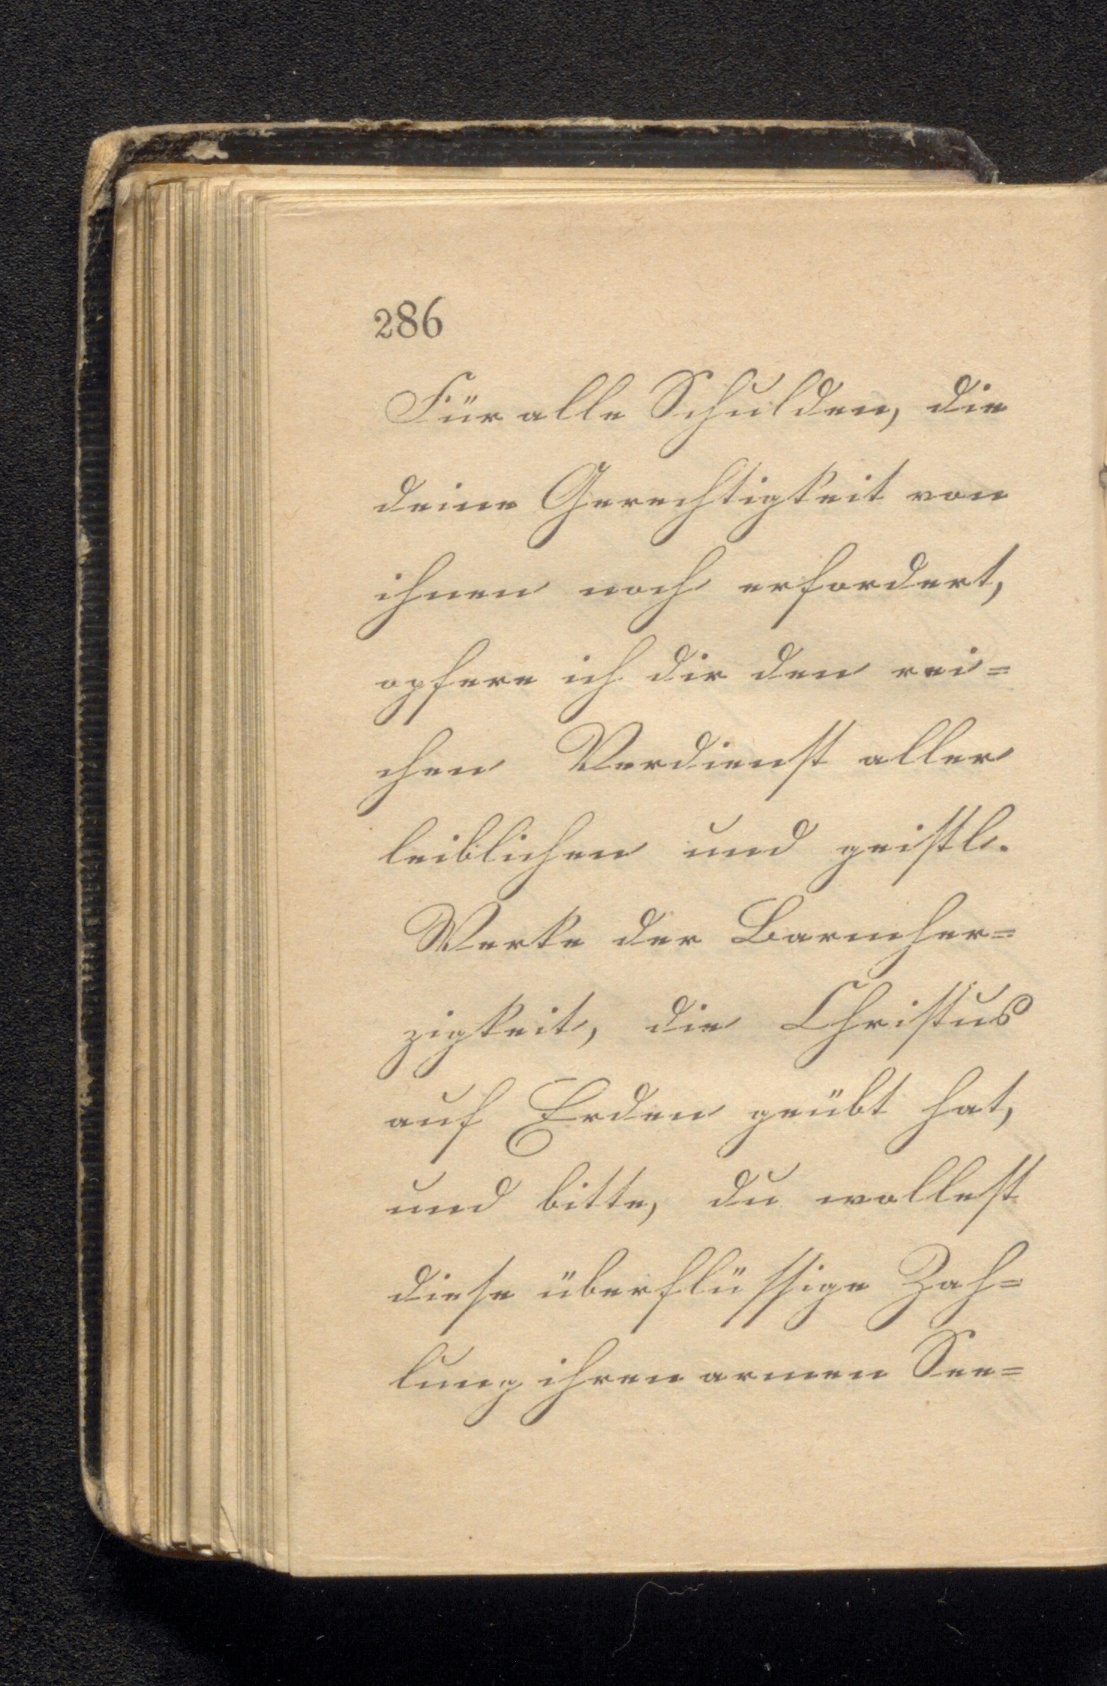 286
Für alle Schulden, die
deine Gerechtigkeit von
ihnen noch erfordert,
opfere ich dir den rei=
chen Verdienst aller
leiblichen und geistl.
Werke der Barmher=
zigkeit, die Christus
auf Erden geübt hat,
und bitte, du wollest
diese überflüssige Zah=
lung ihren armen See=